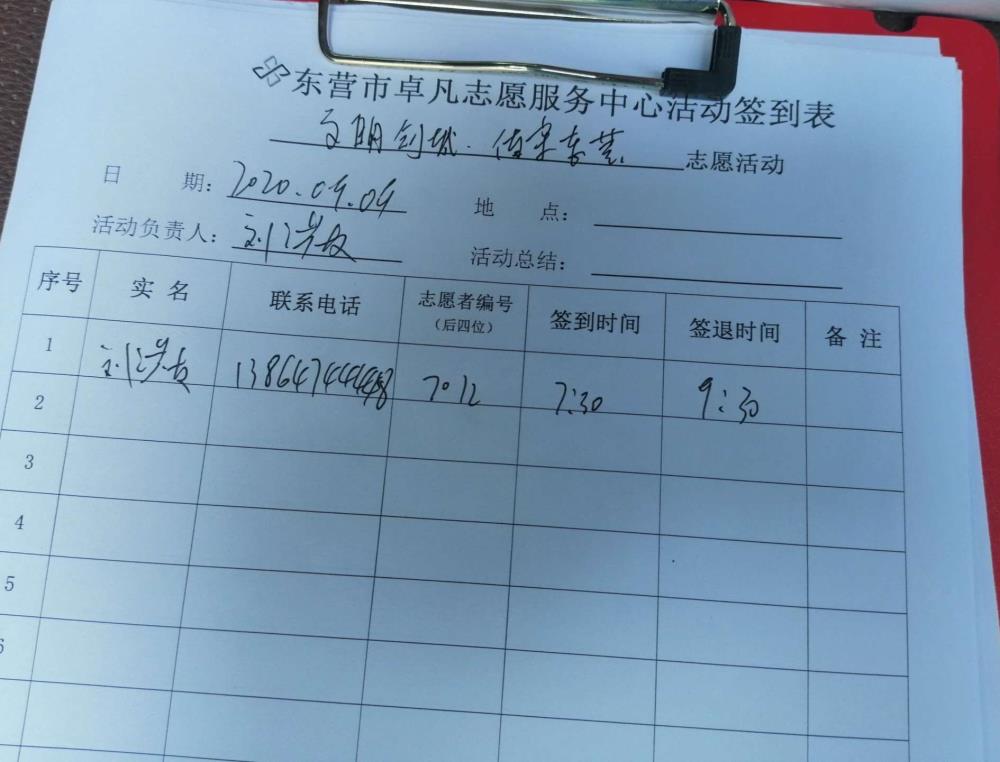 东营市卓凡志愿服务中心活动签到表
文明创城 志愿活动
日 期: 2020.09.09 地 点:
活动负责人: 刘 活动总结:
序号 实 名 联系电话 志愿者编号 签到时间 签退时间 备 注
(后四位)
1 刘 7012 7:30 9:30
2
3
4
5
6